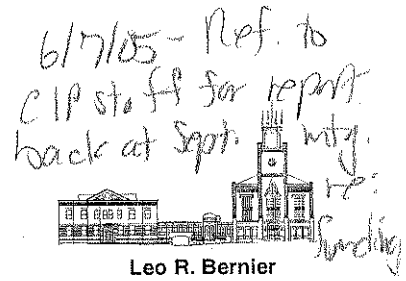 6/7/05 - Ref. to
CIP staff for report
back at Sept. mtg.
re:
funding
Leo R. Bernier